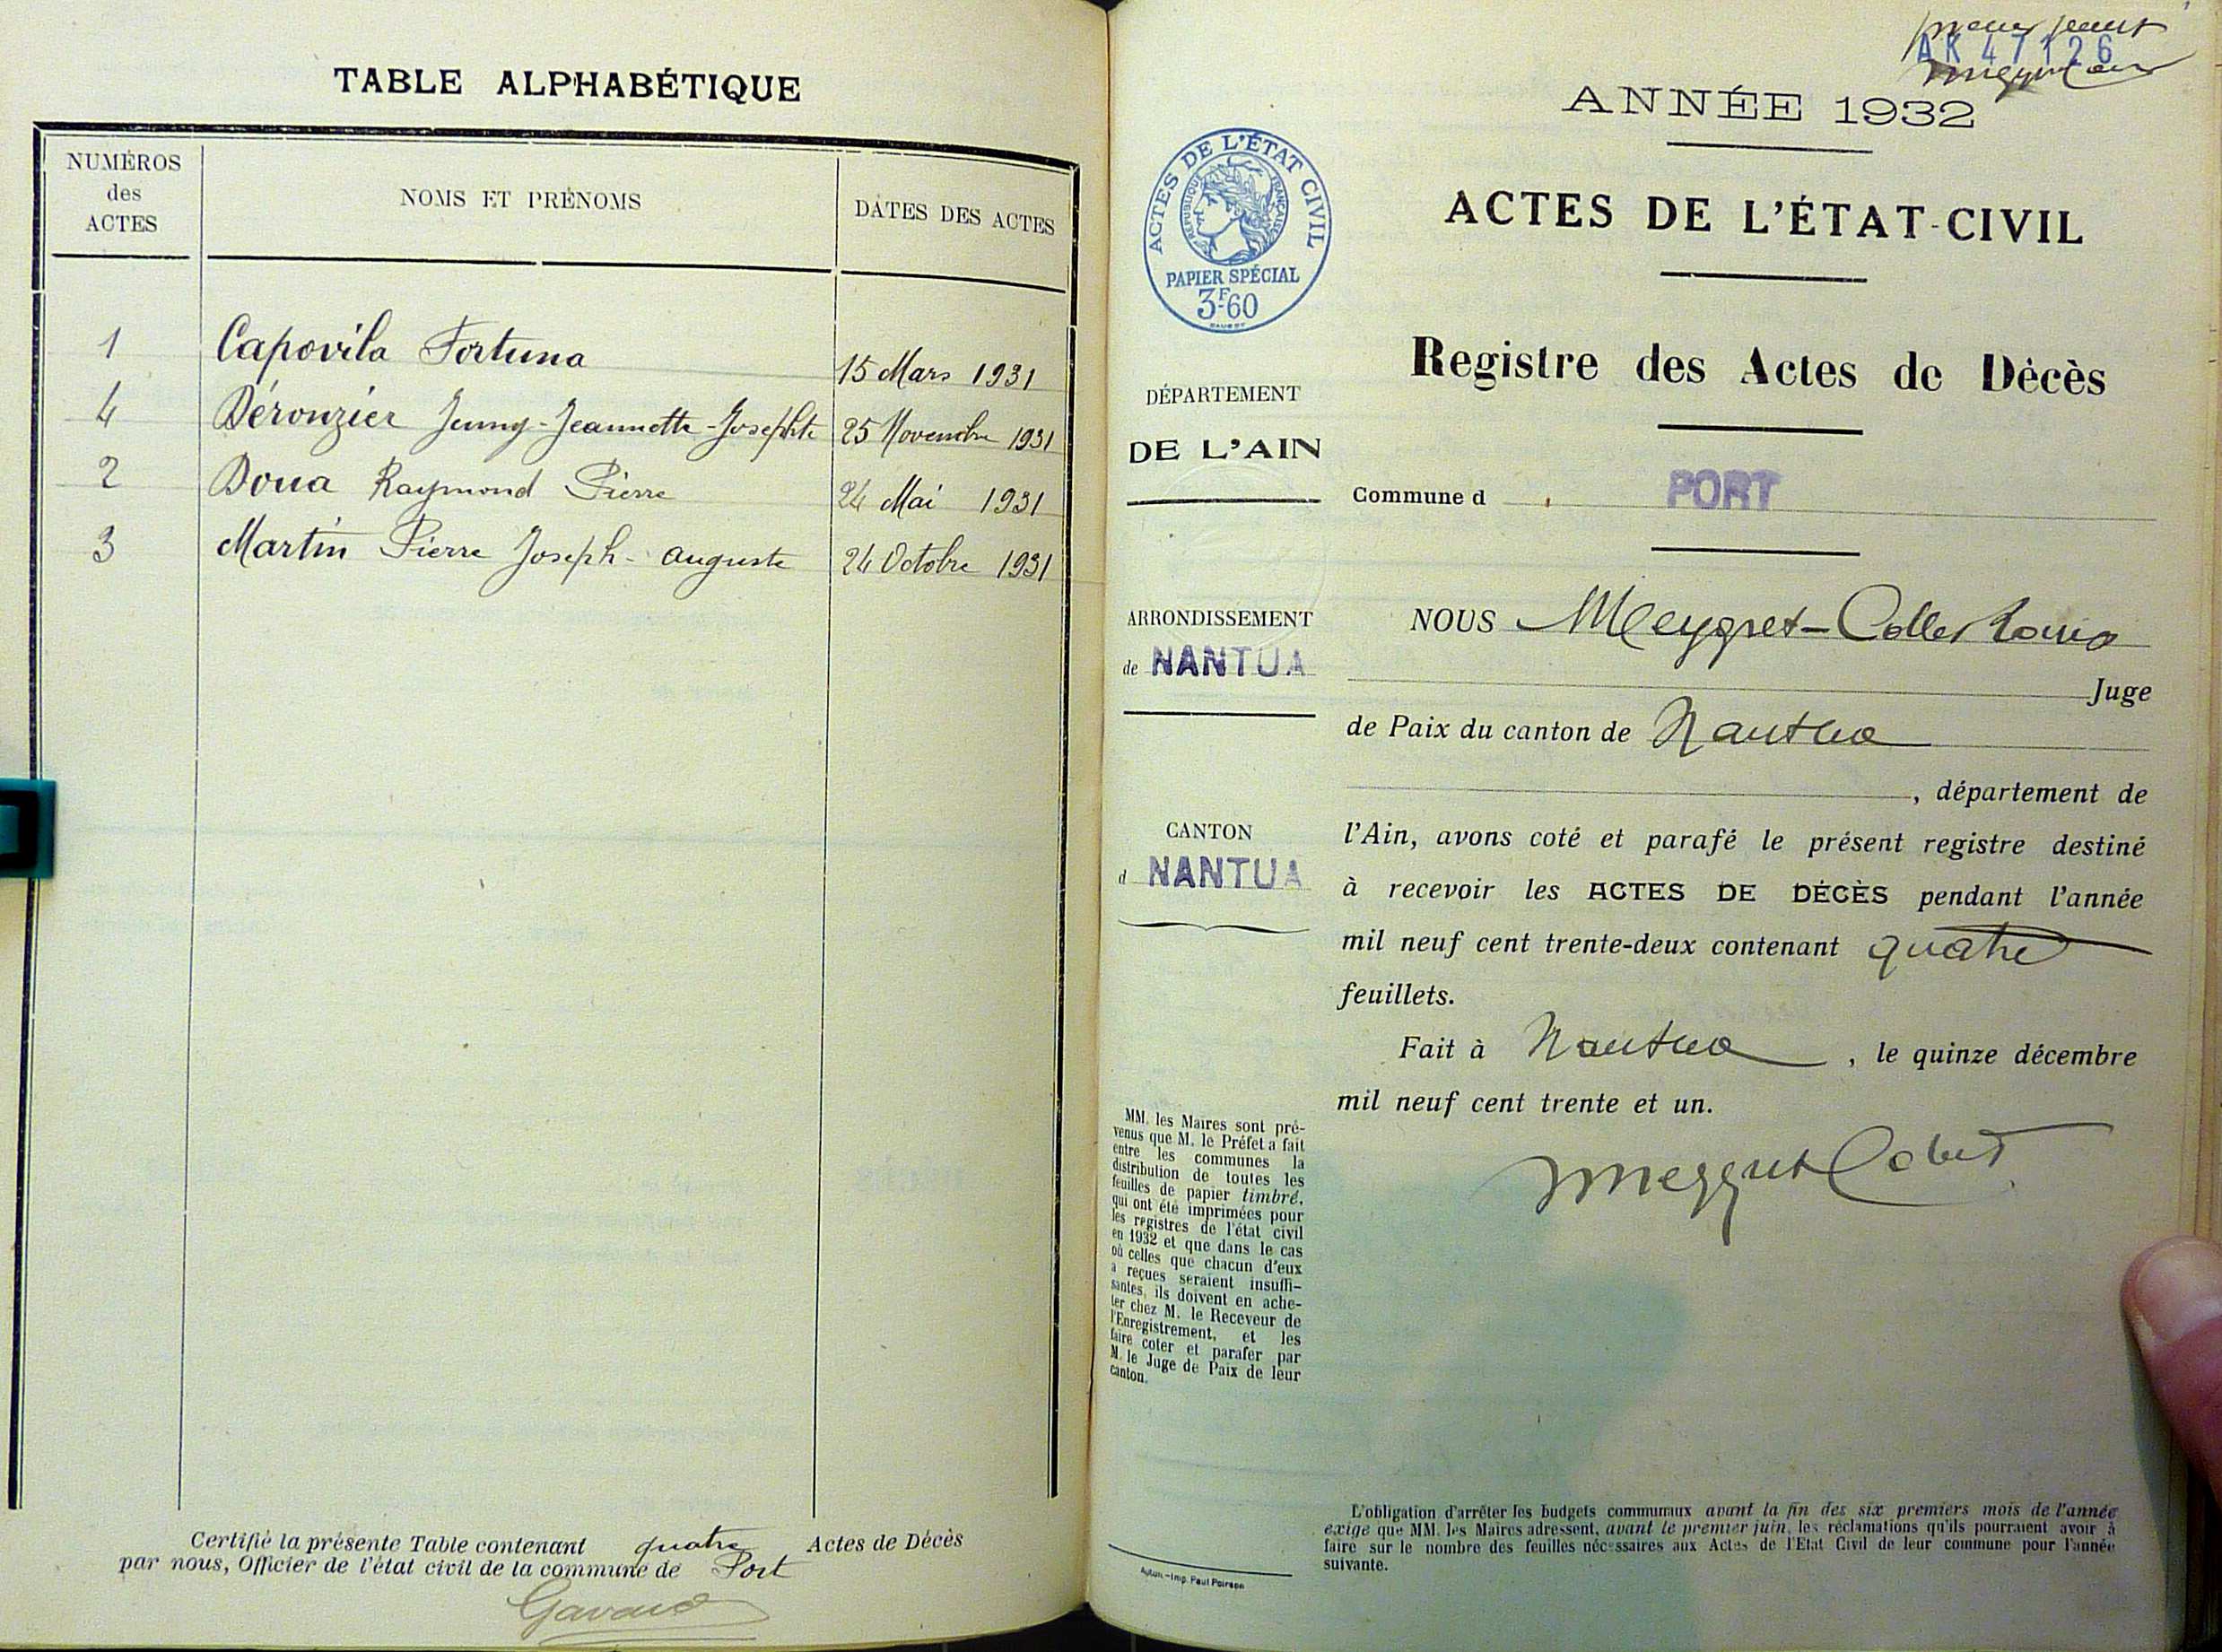 TABLE ALPHABÉTIQUE
NUMÉROS
des
ACTES
NOMS ET PRÉNOMS
DATES DES ACTES
1 Capovila Fortuna 15 Mars 1931
4 Déronzier Jenny-Jeannette-Josephte 25 Novembre 1931
2 Doua Raymond Pierre 24 Mai 1931
3 Martin Pierre Joseph-auguste 24 Octobre 1931
Certifié la présente Table contenant quatre Actes de Décès
par nous, Officier de l'état civil de la commune de Port
AK 47126
ANNÉE 1932
ACTES DE L'ÉTAT CIVIL
RÉPUBLIQUE FRANÇAISE
PAPIER SPÉCIAL
3F.60
ACTES DE L'ÉTAT-CIVIL
Registre des Actes de Décès
DÉPARTEMENT
DE L'AIN
Commune d PORT
ARRONDISSEMENT
de NANTUA
CANTON
d NANTUA
NOUS Meygret-Collet Louis
Juge
de Paix du canton de Nantua
, département de
l'Ain, avons coté et parafé le présent registre destiné
à recevoir les ACTES DE DÉCÈS pendant l'année
mil neuf cent trente-deux contenant quatre
feuillets.
Fait à Nantua, le quinze décembre
mil neuf cent trente et un.
Meygret Collet
MM. les Maires sont pré-
venus que M. le Préfet a fait
entre les communes la
distribution de toutes les
feuilles de papier timbré,
qui ont été imprimées pour
les registres de l'état civil
en 1932 et que dans le cas
où celles que chacun d'eux
a reçues seraient insuffi-
santes, ils doivent en ache-
ter chez M. le Receveur de
l'Enregistrement, et les
faire coter et parafer par
M. le Juge de Paix de leur
canton.
L'obligation d'arrêter les budgets communaux avant la fin des six premiers mois de l'année
exige que MM. les Maires adressent, avant le premier juin, les réclamations qu'ils pourraient avoir à
faire sur le nombre des feuilles nécessaires aux Actes de l'Etat Civil de leur commune pour l'année
suivante.
Imp. Paul Poirson